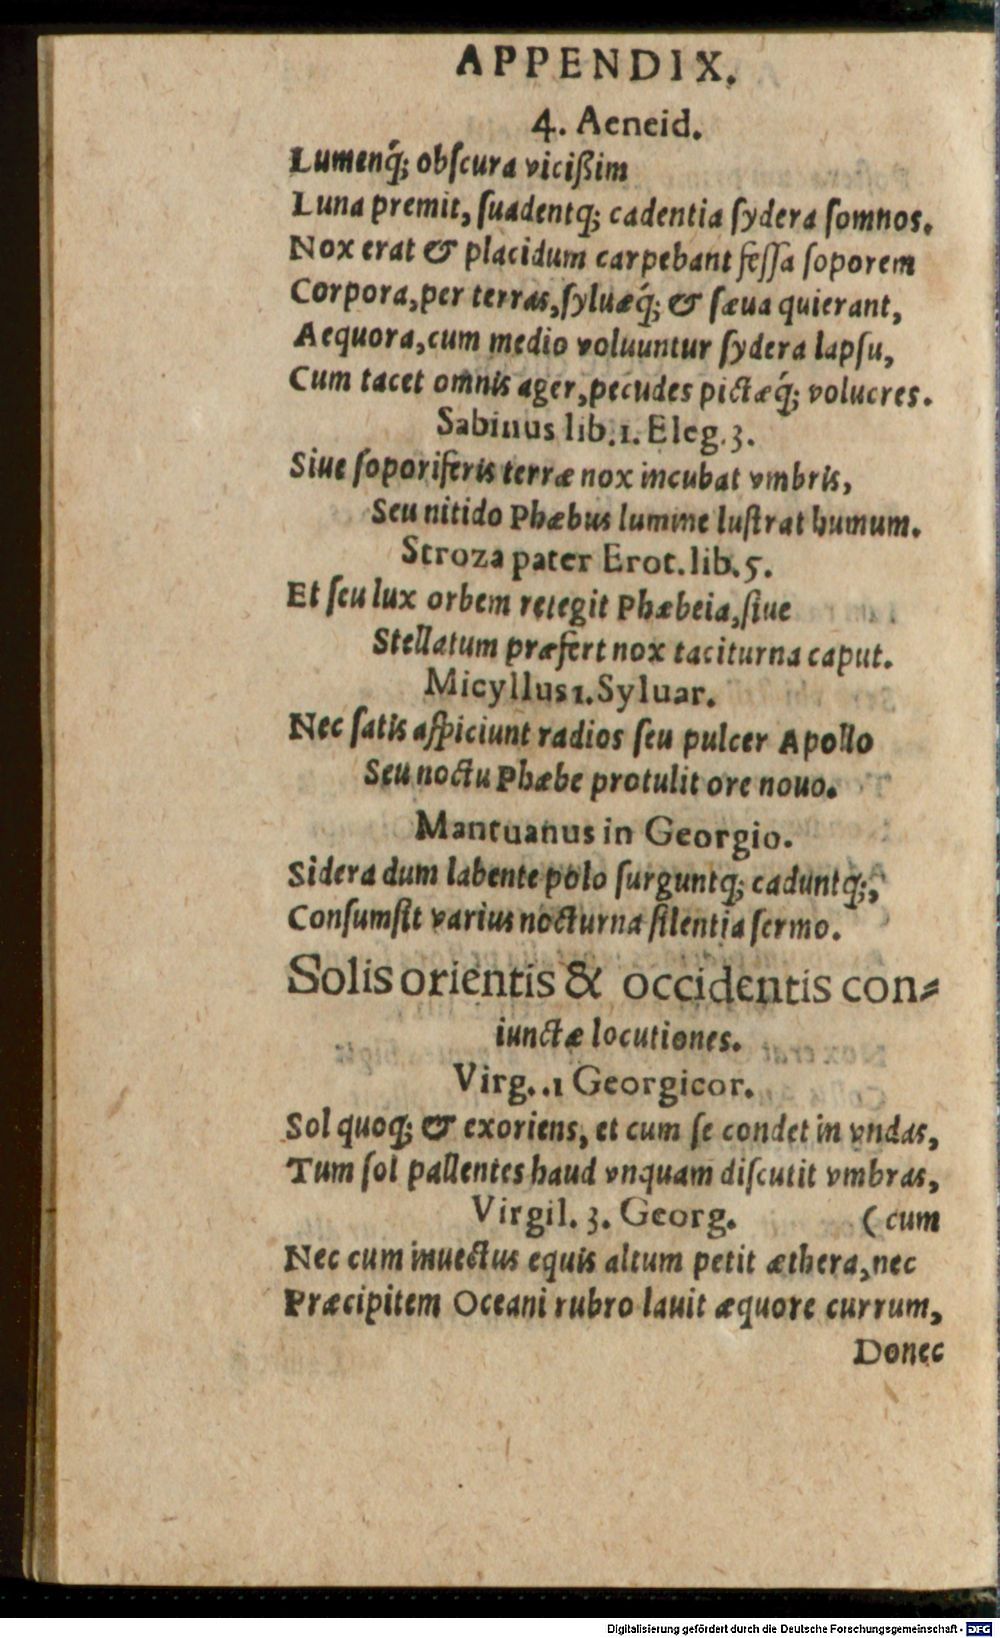 APPENDIX.
4. Aeneid.
Lumenq́; obſcura vicißim
Luna premit, ſuadentq; cadentia ſydera ſomnos.
Nox erat & placidum carpebant feſſa ſoporem
Corpora, per terras, ſyluæq́; & ſæua quierant,
Aequora, cum medio voluuntur ſydera lapſu,
Cum tacet omnis ager, pecudes pictæq́; volucres.
Sabinus lib. 1. Eleg. 3.
Siue ſoporiferis terræ nox incubat vmbris,
Seu nitido Phæbus lumine luſtrat humum.
Stroza pater Erot. lib. 5.
Et ſeu lux orbem retegit Phæbeia, ſiue
Stellatum præfert nox taciturna caput.
Micyllus 1. Syluar.
Nec ſatis aſpiciunt radios ſeu pulcer Apollo
Seu noctu Phæbe protulit ore nouo.
Mantuanus in Georgio.
Sidera dum labente polo ſurguntq; caduntq;,
Conſumſit varius nocturna ſilentia ſermo.
Solis orientis & occidentis con⸗
iunctæ locutiones.
Virg. .1 Georgicor.
Sol quoq; & exoriens, et cum ſe condet in vndas,
Tum ſol pallentes haud vnquam diſcutit vmbras,
Virgil. 3. Georg. (cum
Nec cum inuectus equis altum petit æthera, nec
Præcipitem Oceani rubro lauit æquore currum,
Donec
Digitalisierung gefördert durch die Deutsche Forschungsgemeinschaft - DFG